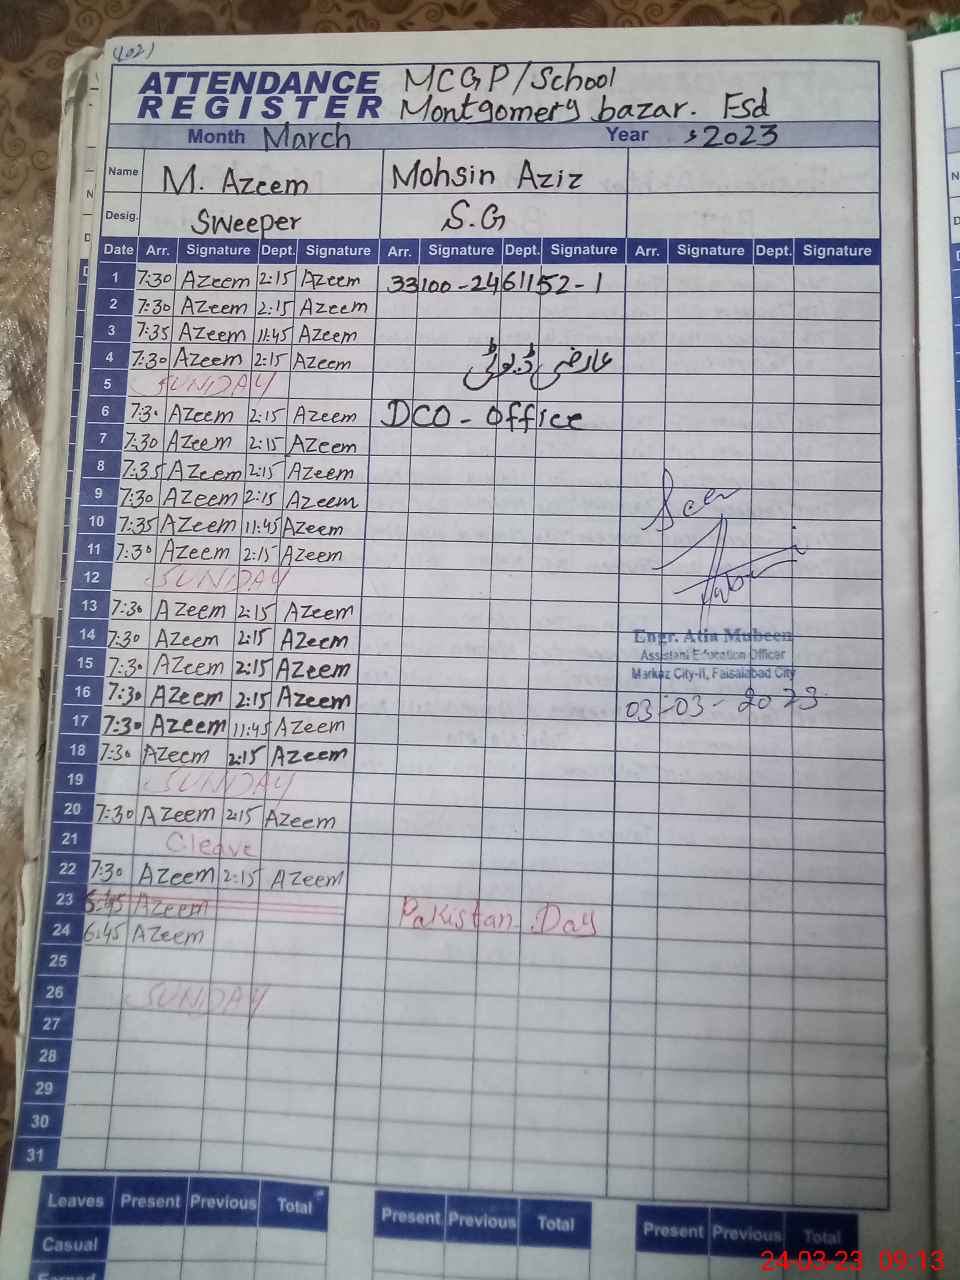 (102)
ATTENDANCE REGISTER MCGP/School
Montgomery bazar. Fsd
Month March Year 2023
Name M. Azeem Mohsin Aziz
Desig. Sweeper S.G
Date Arr. Signature Dept. Signature Arr. Signature Dept. Signature Arr. Signature Dept. Signature
1 7:30 Azeem 2:15 Azeem 33100-2461152-1
2 7:30 Azeem 2:15 Azeem
3 7:35 Azeem 11:45 Azeem
4 7:30 Azeem 2:15 Azeem عارضی ڈیوٹی
5 SUNDAY
6 7:30 Azeem 2:15 Azeem DCO - Office
7 7:30 Azeem 2:15 Azeem
8 7:35 Azeem 2:15 Azeem
9 7:30 Azeem 2:15 Azeem Seen
10 7:35 Azeem 11:45 Azeem
11 7:30 Azeem 2:15 Azeem
12 SUNDAY
13 7:30 Azeem 2:15 Azeem
14 7:30 Azeem 2:15 Azeem Engr. Atia Mubeen
15 7:30 Azeem 2:15 Azeem Assistant Education Officer
Markaz City-II, Faisalabad City
16 7:30 Azeem 2:15 Azeem 03-03-2023
17 7:30 Azeem 11:45 Azeem
18 7:30 Azeem 2:15 Azeem
19 SUNDAY
20 7:30 Azeem 2:15 Azeem
21 Cleave
22 7:30 Azeem 2:15 Azeem
23 6:45 Azeem Pakistan Day
24 6:45 Azeem
25
26 SUNDAY
27
28
29
30
31
Leaves Present Previous Total Present Previous Total Present Previous Total
Casual
Earned
24-03-23 09:13